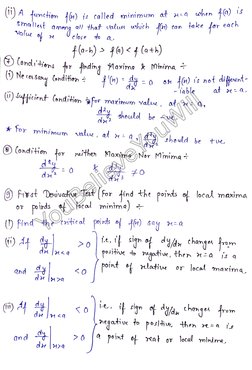 (ii) A function f(x) is called minimum at x=a when f(x) is
smallest among all that values which f(x) can take for each
value of x close to a.
f(a-h) > f(a) < f(a+h)
⑦ Conditions for finding Maxima & Minima ÷
(i) Necessary Condition ÷ f'(x) = dy/dx = 0 or f(x) is not different-
-iable at x=a
(ii) Sufficient Condition ÷ * For maximum value, at x=a,
d²y/dx² should be -ve.
* For minimum value, at x=a, d²y/dx² should be +ve.
⑧ Condition for neither Maxima Nor Minima ÷
d²y/dx² = 0 ≠ 0
⑨ First Derivative Test (For find the points of local maxima
or points of local minima) ÷
(i) Find the critical points of f(x) say x=a
(ii) if dy/dx | x<a > 0 i.e., if sign of dy/dx changes from
positive to negative, then x=a is a
and dy/dx | x>a < 0 point of relative or local maxima.
(iii) if dy/dx | x<a < 0 i.e., if sign of dy/dx changes from
negative to positive, then x=a is
and dy/dx | x>a > 0 a point of or local minima.